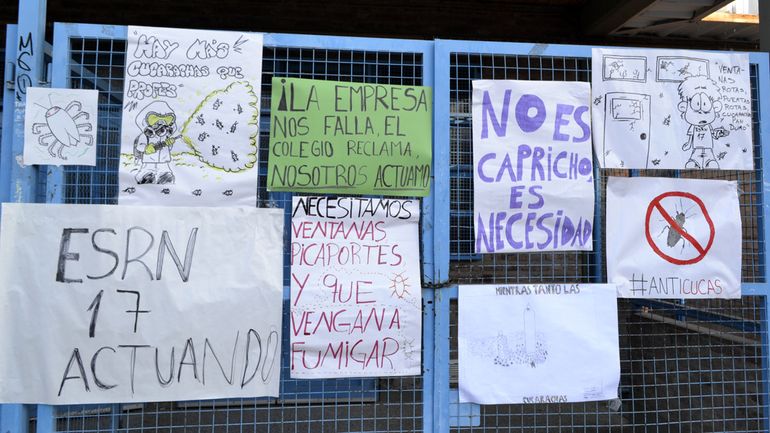 HAY MÁS
CUCARACHAS QUE
PROFES
¡LA EMPRESA
NOS FALLA, EL
COLEGIO RECLAMA,
NOSOTROS ACTUAMO
NO ES
CAPRICHO,
ES
NECESIDAD
VENTA-
NAS
ROTAS,
PUERTAS
ROTAS,
CUCARACHA
PAN
DUMO
17
ESRN
17
ACTUANDO
NECESITAMOS
VENTANAS
PICAPORTES
Y QUE
VENGAN A
FUMIGAR
MIENTRAS TANTO LAS
CUCARACHAS
#ANTICUCAS